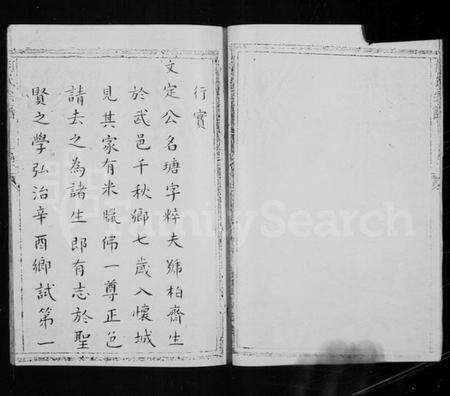 行實
文定公名瑭字粹夫號柏齋生
於武邑千秋鄉七歲入懷城
見其家有米曬佛一尊正色
請去之為諸生即有志於聖
賢之學弘治辛酉鄉試第一
FamilySearch